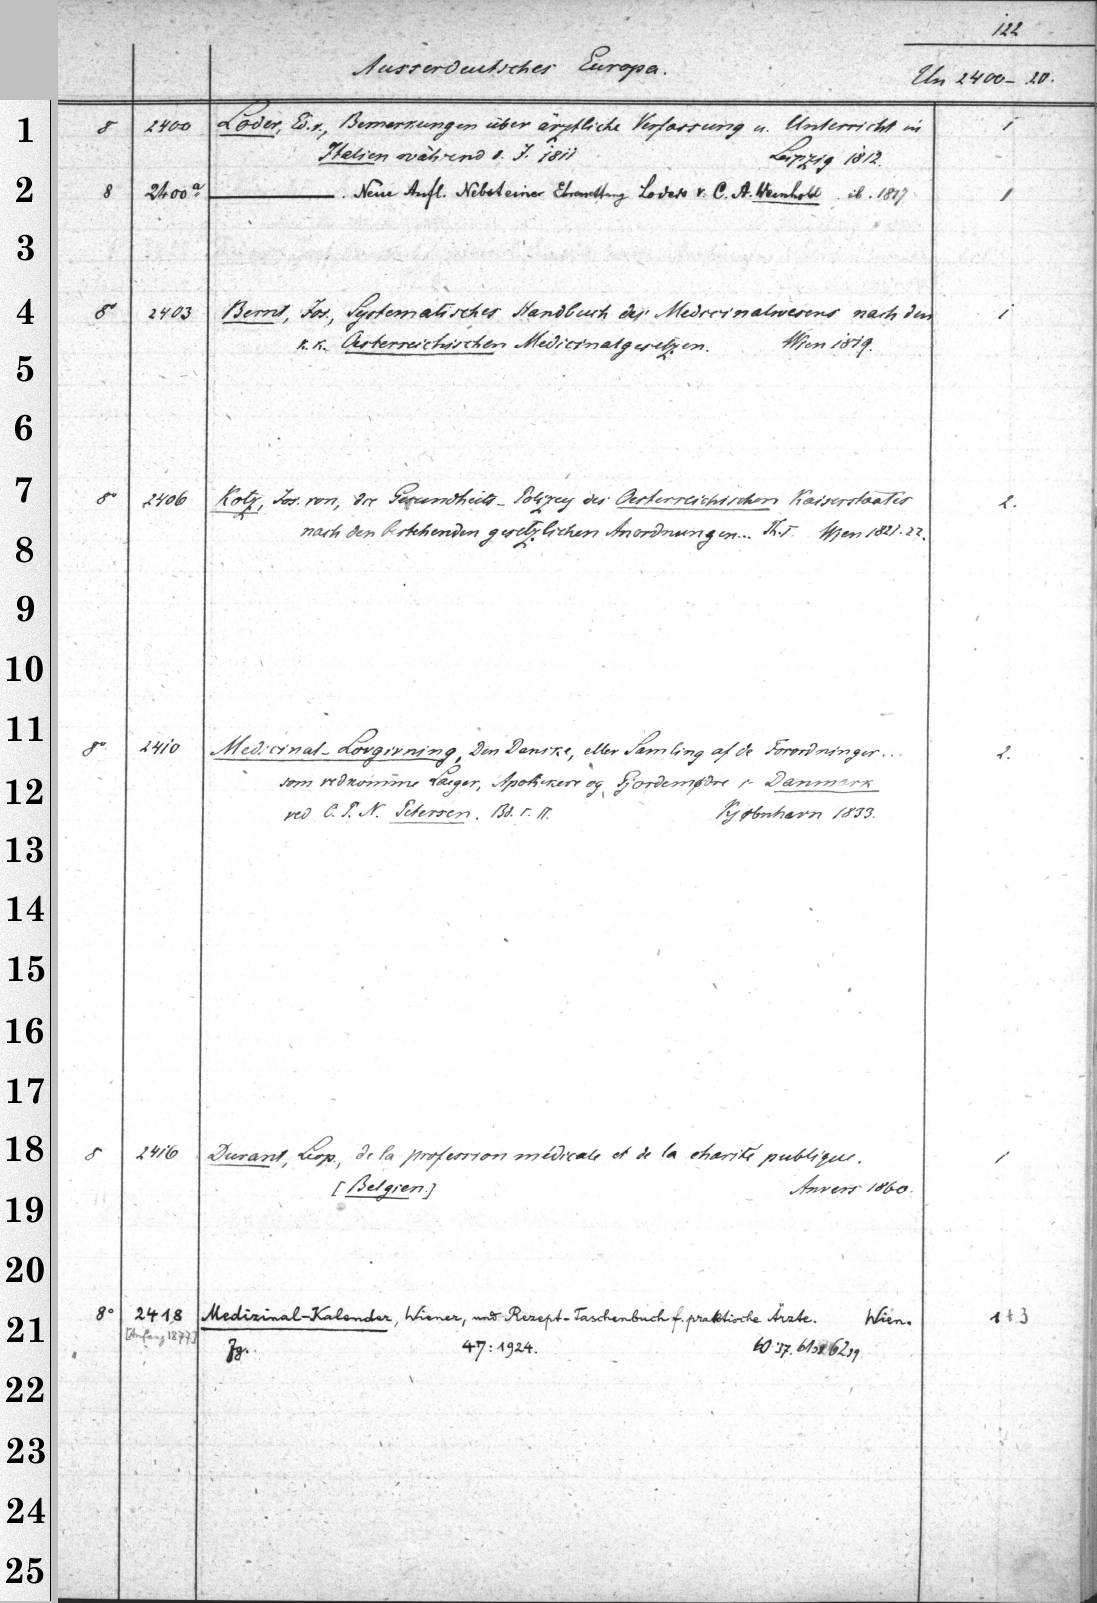 122
Ausserdeutsches Europa.
Un 2400-20.
1
8 2400 Loder, Ed. v., Bemerkungen über ärztliche Verfassung u. Unterricht in 1
Italien während d. J. 1811 Leipzig 1812.
2
8 2400a ——— . Neue Aufl. Nebst einer Loders v. C. A. Weinhold . ib. 1817 1
3
4
8° 2403 Bernt, Jos., Systematisches Handbuch des Medicinalwesens nach den 1
k. k. Oesterreichischen Medicinalgesetzen. Wien 1819.
5
6
7
8° 2406 Kotz, Jos. von, die Gesundheits-Polizey des Oesterreichischen Kaiserstaates 2.
nach den bestehenden gesetzlichen Anordnungen... Th. I. Wien 1821-22.
8
9
10
11
8° 2410 Medicinal-Lovgivning, Den Danske, eller Samling af de Forordninger... 2.
som vedkomme Laeger, Apothekere og Gjordemødre i Danmark
12
ved C. P. N. Petersen. Bd. I. II. Kjøbnhavn 1833.
13
14
15
16
17
18
8 2416 Durant, Leop., de la profession médicale et de la charité publique. 1
[Belgien.] Anvers 1860.
19
20
21
8° 2418 Medizinal-Kalender, Wiener, und Rezept-Taschenbuch f. praktische Ärzte. Wien. 1+3
[Anfang 1877] Jg. 47: 1924. 60:37. 61:38. 62:39.
22
23
24
25